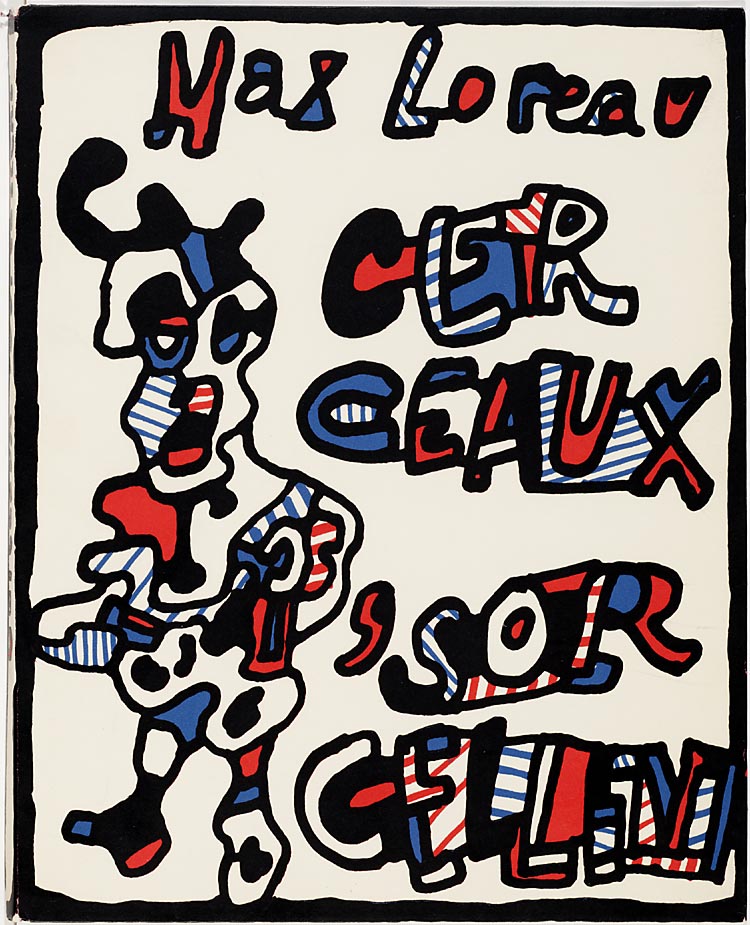 Max Loreau
CER
CEAUX
'SOR
CELLENT